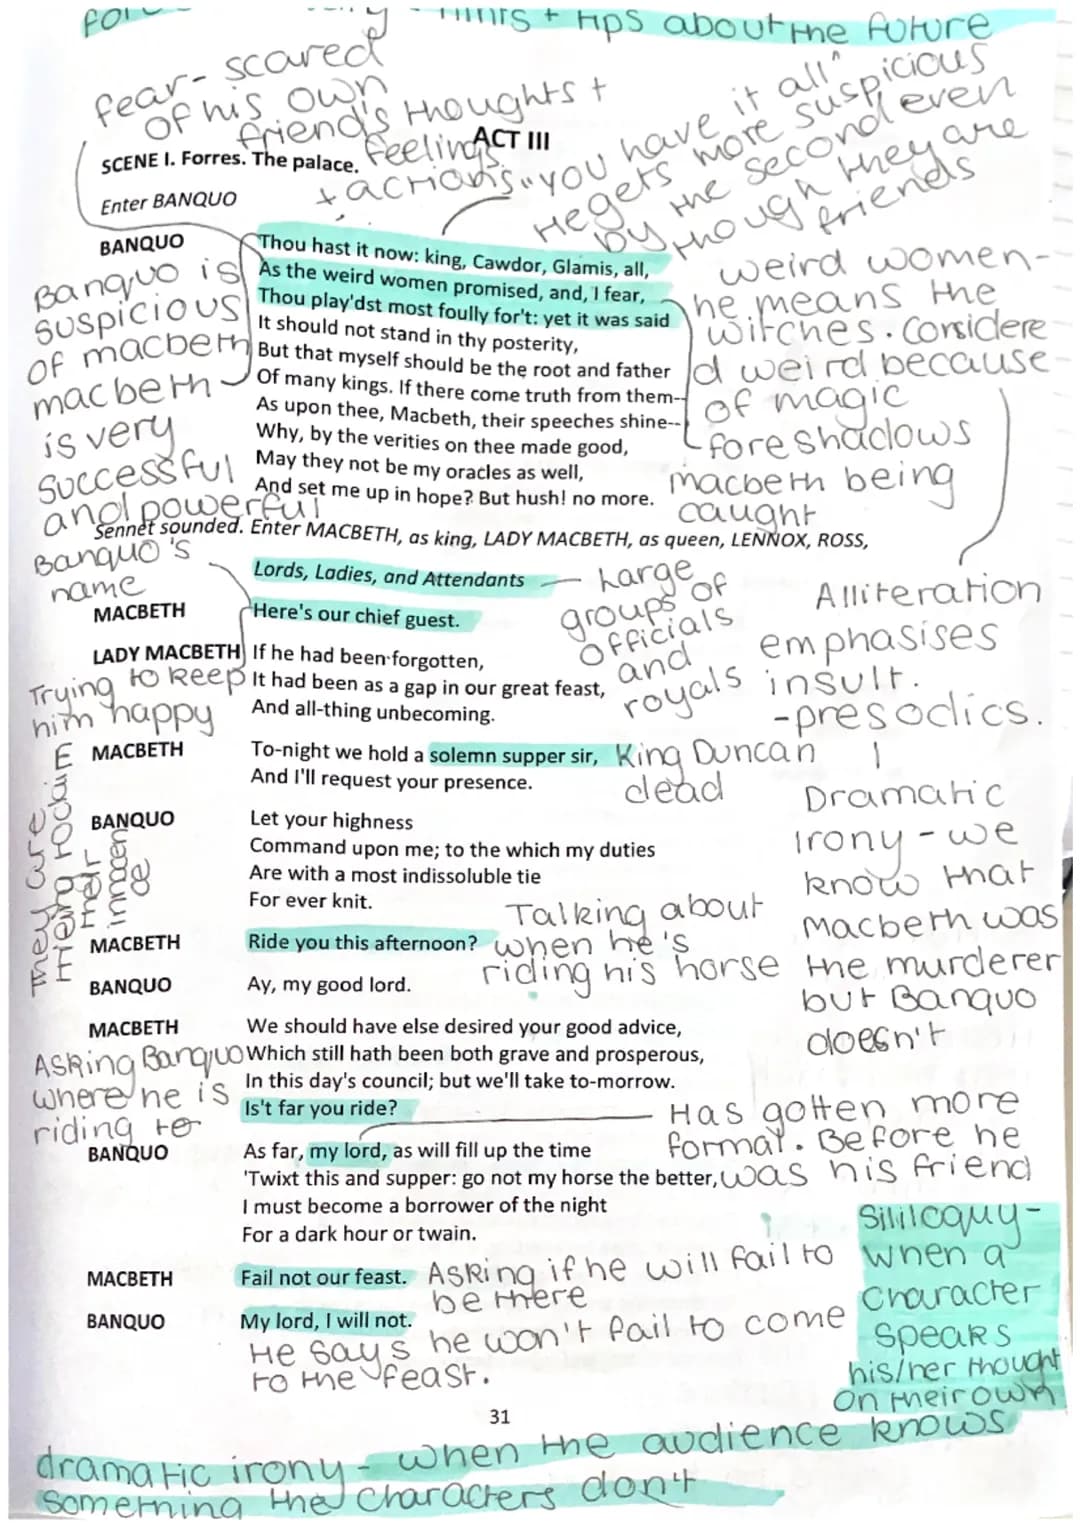 hints + tips about the future
fear- scared
of his own
friend's thoughts +
feelings
+ actions
"you have it all"
He gets more suspicious
by the second even
though they are
friends
ACT III
SCENE I. Forres. The palace.
Enter BANQUO
BANQUO
Thou hast it now: king, Cawdor, Glamis, all,
As the weird women promised, and, I fear,
Thou play'dst most foully for't: yet it was said
It should not stand in thy posterity,
But that myself should be the root and father
Of many kings. If there come truth from them--
As upon thee, Macbeth, their speeches shine--
Why, by the verities on thee made good,
May they not be my oracles as well,
And set me up in hope? But hush! no more.
Banquo is
suspicious
of macbeth
macbeth
is very
successful
and powerful
weird women-
he means the
witches. Considere
d weird because
of magic
foreshadows
macbeth being
caught
Sennet sounded. Enter MACBETH, as king, LADY MACBETH, as queen, LENNOX, ROSS,
Lords, Ladies, and Attendants
Banquo's
name
Large
groups of
officials
and
royals
Alliteration
emphasises
insult.
-presodics.
MACBETH
Here's our chief guest.
LADY MACBETH
If he had been forgotten,
It had been as a gap in our great feast,
And all-thing unbecoming.
Trying to keep
him happy
MACBETH
To-night we hold a solemn supper sir,
And I'll request your presence.
King Duncan
dead
Dramatic
irony - we
know that
Macbeth was
the murderer
but Banquo
doesn't
BANQUO
Let your highness
Command upon me; to the which my duties
Are with a most indissoluble tie
For ever knit.
they are
MACBETH
Ride you this afternoon?
Talking about
when he's
riding his horse
BANQUO
Ay, my good lord.
MACBETH
We should have else desired your good advice,
Which still hath been both grave and prosperous,
In this day's council; but we'll take to-morrow.
Is't far you ride?
Asking Banquo
where he is
riding to
BANQUO
As far, my lord, as will fill up the time
'Twixt this and supper: go not my horse the better,
I must become a borrower of the night
For a dark hour or twain.
Has gotten more
formal. Before he
was his friend
MACBETH
Fail not our feast.
Asking if he will fail to
be there
BANQUO
My lord, I will not.
He says he won't fail to come
to the feast.
Sililoquy-
when a
character
speaks
his/her thought
on their own
31
dramatic irony - when the audience knows
something the characters don't